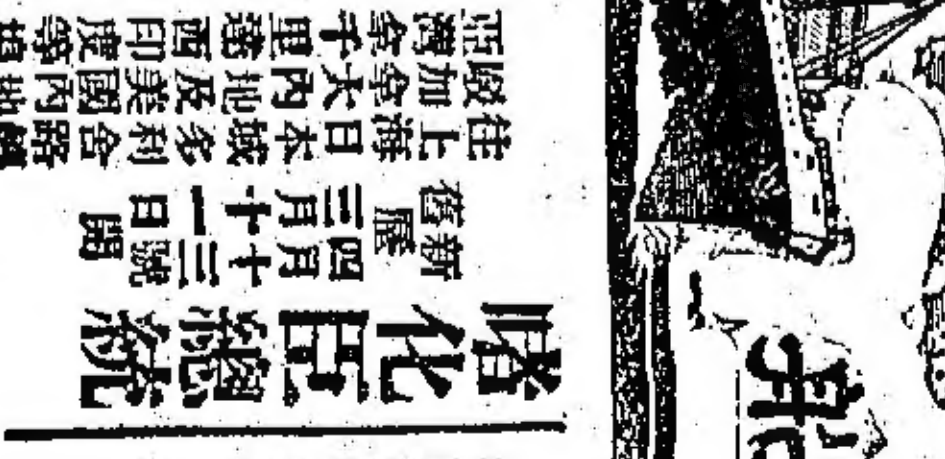 啫化臣總統
新曆四月十三號
舊曆三月十一日開
往上海日本域多利舍路
駁加拿大內地及美國內地
夏灣拿千里達西印度等埠